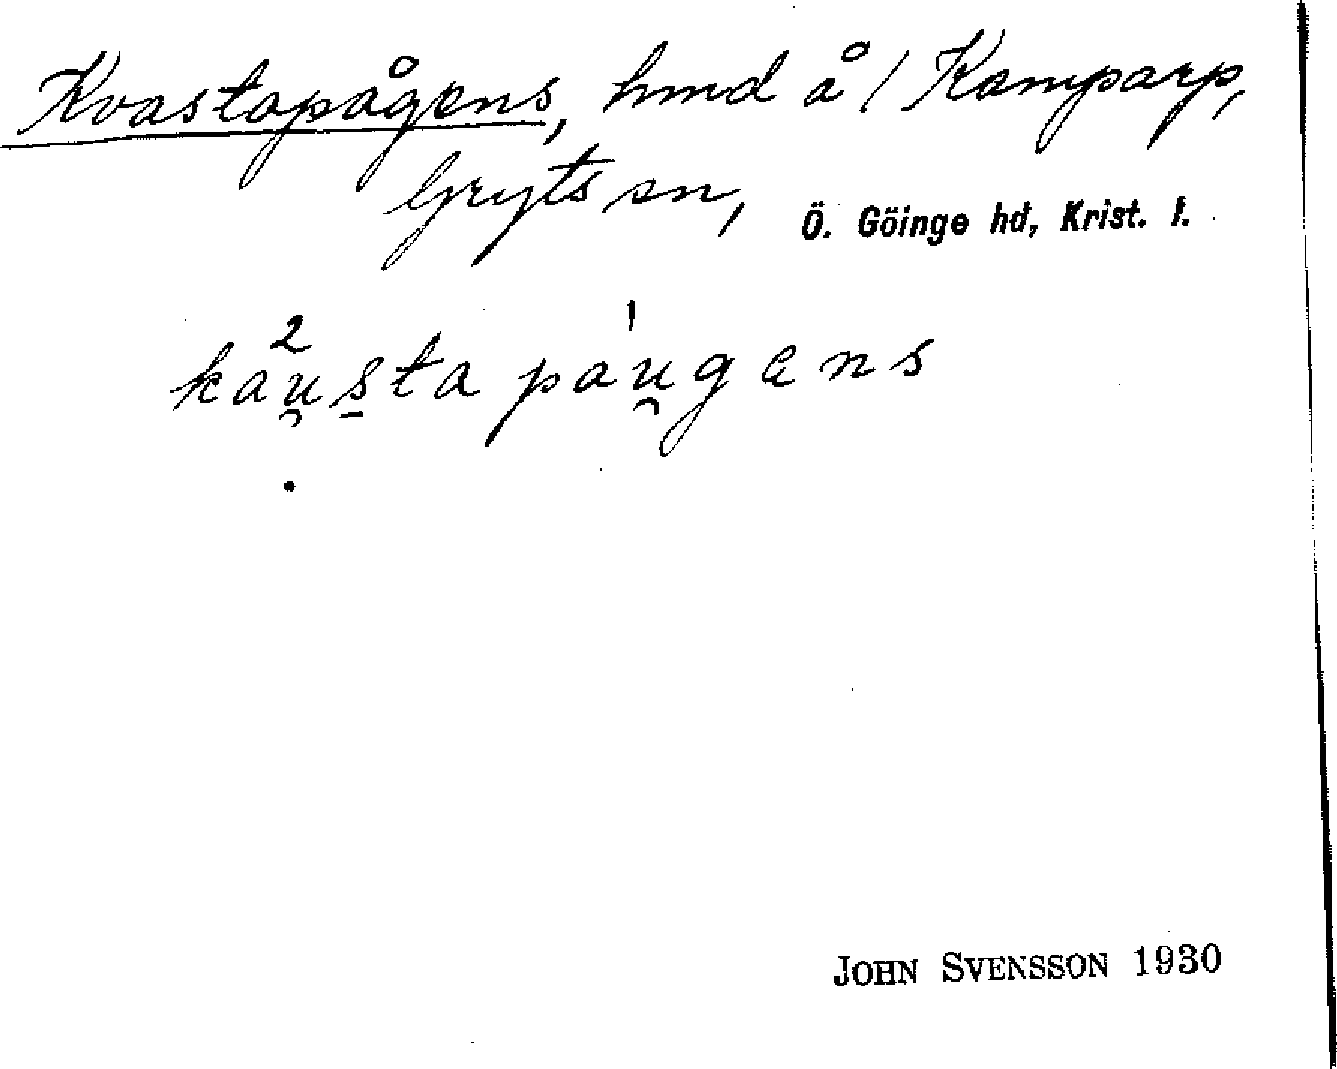 Kvastapågens, hmd å / Kamparp,
Gryts sn, Ö. Göinge hd, Krist. l.
2 1
kau̯s̱ta pau̯gens
JOHN SVENSSON 1930